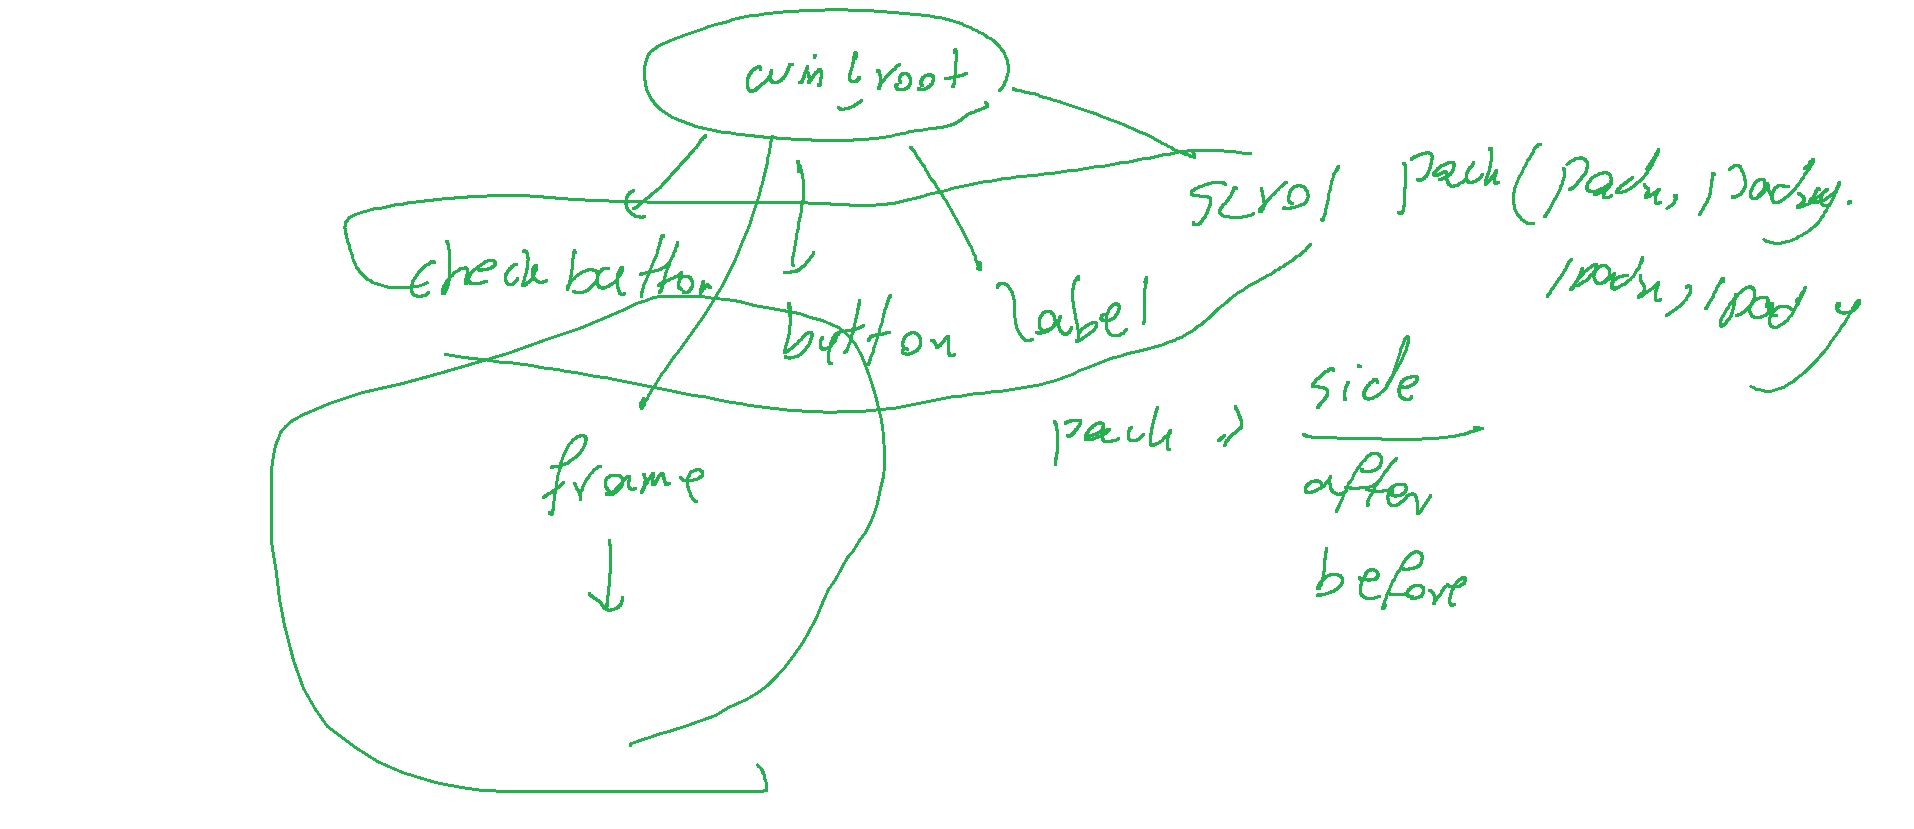 win/root
scrol pack(padx, pady.
ipadx, ipady
checkbutton
button
label
side
pack
after
frame
before